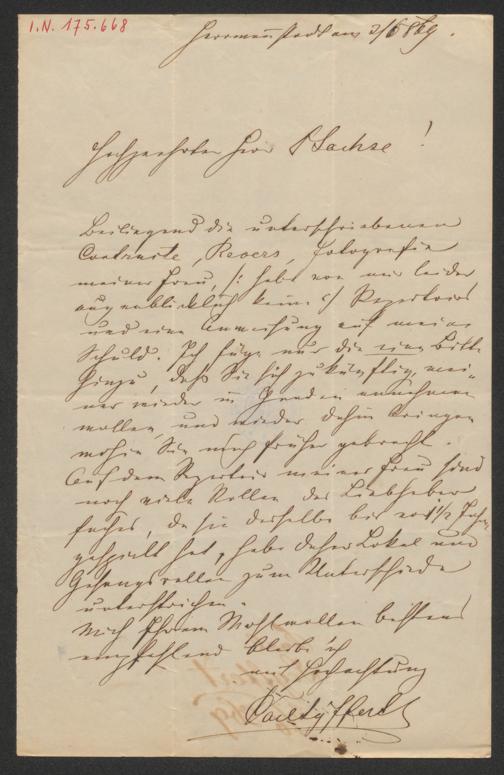 I.N. 175.668
Herrmannstadt am 2/6 869.
Hochgeehrter Herr Sachse!
Beiliegend die unterschriebenen
Contracte, Revers, Fotografie
meiner Frau, /: habe von mir leider
augenblicklich keine :/ Repertoirs
und eine Anweisung auf meine
Schuld. Ich füge nur die eine Bitte
hinzu, daß Sie sich zukünftig mei-
ner wieder in Gnaden annehmen
wollen, und wieder dahin bringen
wohin Sie mich früher gebracht.
Auf dem Repertoir meiner Frau sind
noch viele Rollen des Liebhaber
faches, da sie derselbe bis vor 1 1/2 Jahr
gespielt hat, habe daher Lokal und
Gesangsrollen zum Unterschiede
unterstrichen.
Mich Ihrem Wohlwollen bestens
empfehlend bleibe ich
mit Hochachtung